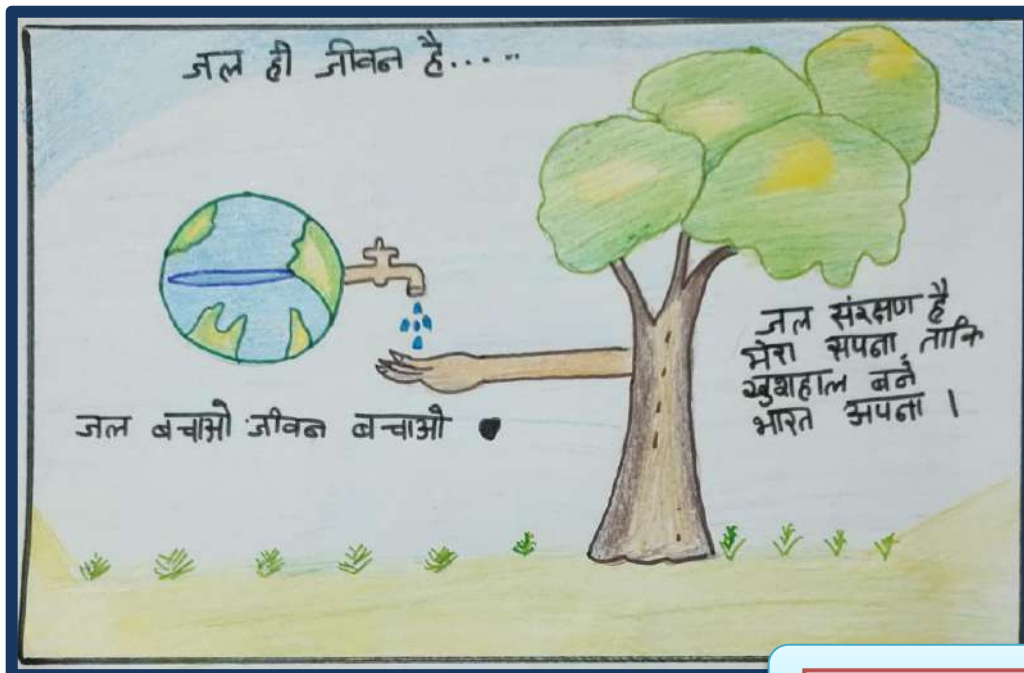 जल ही जीवन है.....
जल बचाओ जीवन बचाओ
जल संरक्षण है
मेरा सपना, ताकि
खुशहाल बने
भारत अपना ।